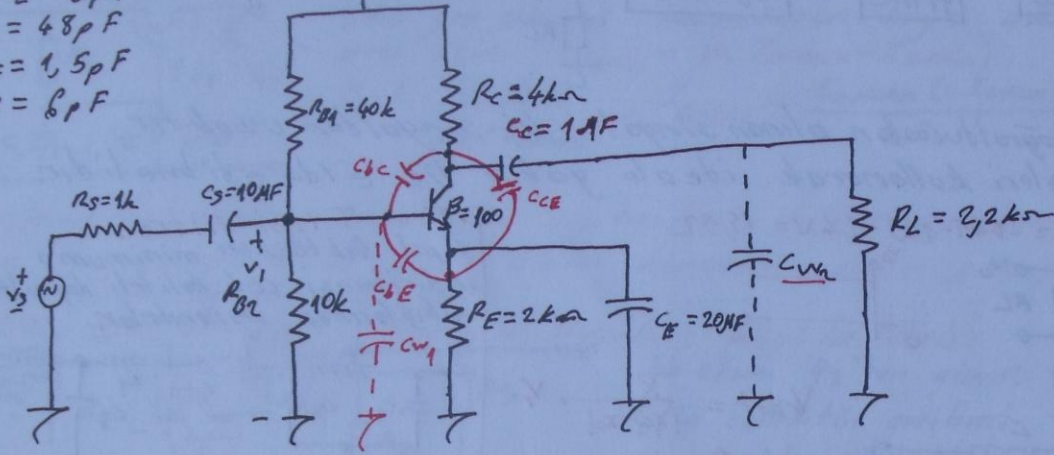 = 48pF
= 1,5pF
= 6pF
RB1=40k
Rc=4kΩ
Cc=1MF
Cbc
CCE
Rs=1k
Cs=10MF
β=100
RL=2,2kΩ
+
V1
-
+
Vs
RB2
10k
CbE
Cw1
RE=2kΩ
CE=20MF
Cw2